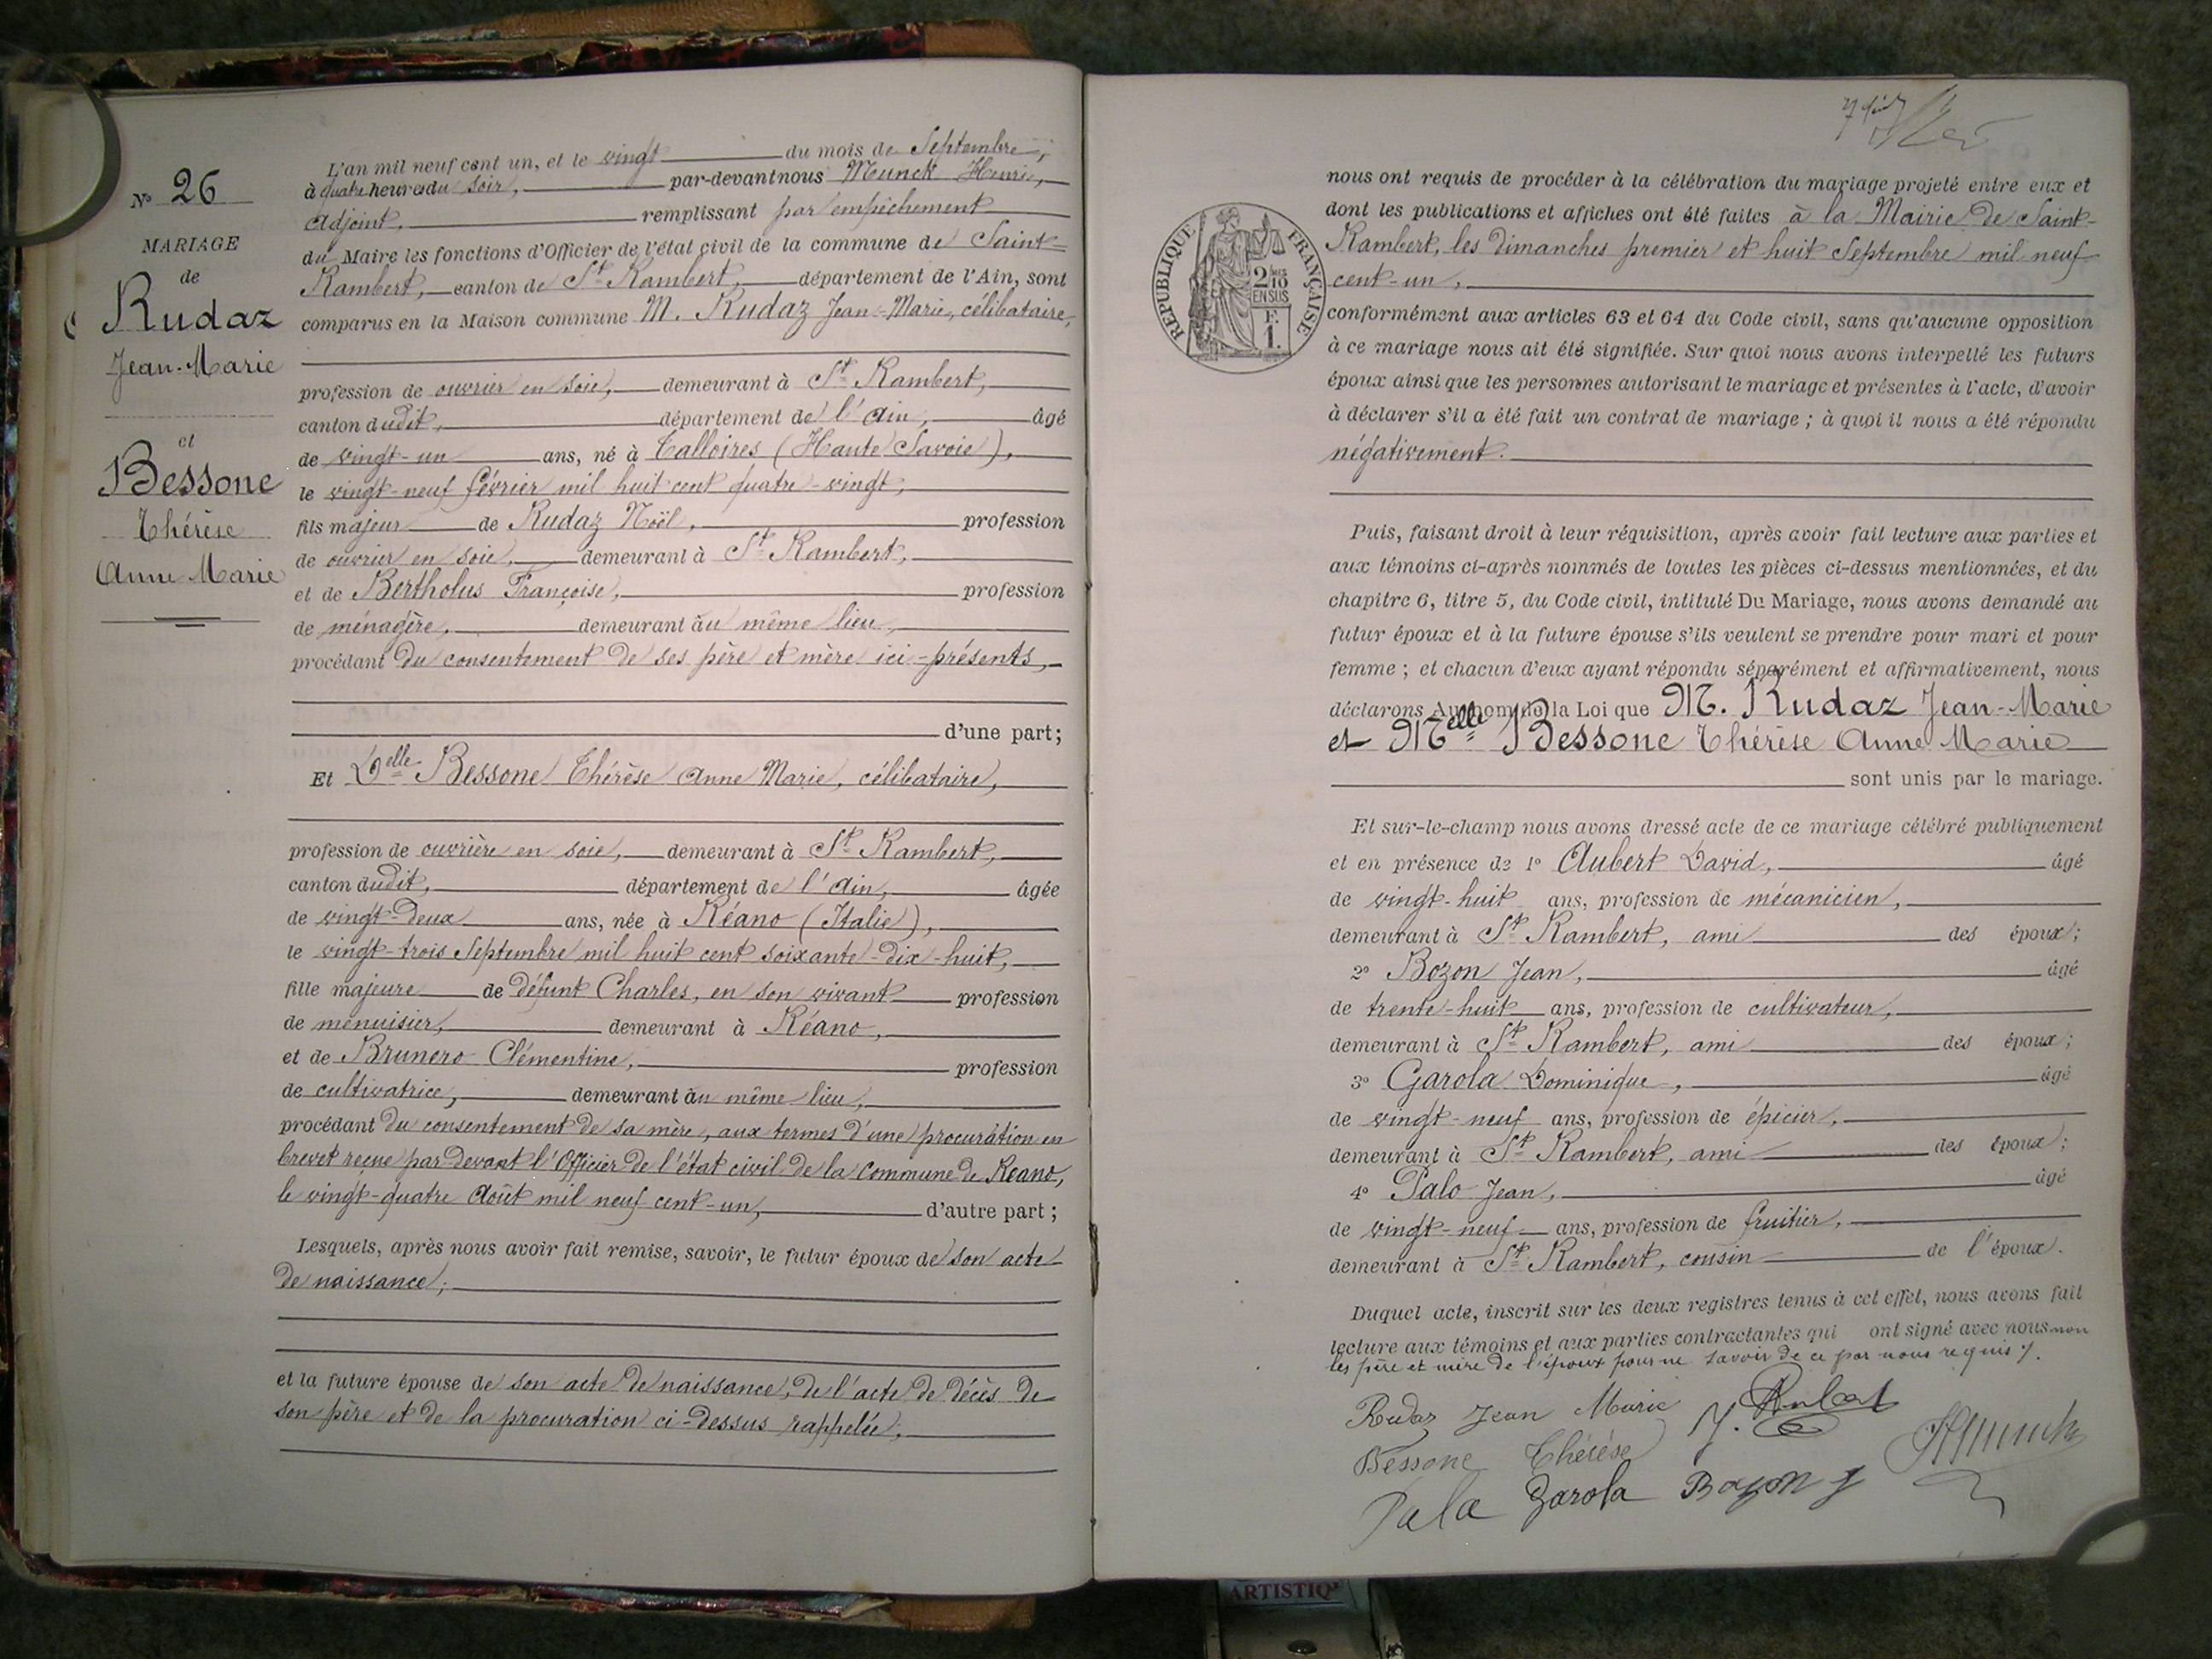 N° 26
MARIAGE
de
Rudaz
Jean-Marie
et
Bessone
Thérèse
Anne Marie
L'an mil neuf cent un, et le vingt du mois de Septembre,
à quatre heures du soir, par-devant nous Munck Henri,
adjoint, remplissant par empêchement
du Maire les fonctions d'Officier de l'état civil de la commune de Saint-
Rambert, canton de St Rambert, département de l'Ain, sont
comparus en la Maison commune M. Rudaz Jean-Marie, célibataire,
profession de ouvrier en soie, demeurant à St Rambert,
canton dudit, département de l'Ain, âgé
de vingt-un ans, né à Talloires (Haute Savoie),
le vingt-neuf février mil huit cent quatre-vingt,
fils majeur de Rudaz Noël, profession
de ouvrier en soie, demeurant à St Rambert,
et de Bertholus Françoise, profession
de ménagère, demeurant au même lieu,
procédant du consentement de ses père et mère ici-présents,
d'une part;
Et Delle Bessone Thérèse Anne Marie, célibataire,
profession de ouvrière en soie, demeurant à St Rambert,
canton dudit, département de l'Ain, âgée
de vingt-deux ans, née à Réano (Italie),
le vingt-trois Septembre mil huit cent soixante-dix-huit,
fille majeure de défunt Charles, en son vivant profession
de menuisier, demeurant à Réano,
et de Brunero Clémentine, profession
de cultivatrice, demeurant au même lieu,
procédant du consentement de sa mère, aux termes d'une procuration en
brevet reçue par devant l'Officier de l'état civil de la Commune de Reano,
le vingt-quatre Août mil neuf cent-un, d'autre part;
Lesquels, après nous avoir fait remise, savoir, le futur époux de son acte
de naissance;
et la future épouse de son acte de naissance, de l'acte de décès de
son père et de la procuration ci-dessus rappelée;
RÉPUBLIQUE FRANÇAISE
2/10
EN SUS
F.
1.
nous ont requis de procéder à la célébration du mariage projeté entre eux et
dont les publications et affiches ont été faites à la Mairie de Saint-
Rambert, les dimanches premier et huit Septembre mil neuf
cent-un,
conformément aux articles 63 et 64 du Code civil, sans qu'aucune opposition
à ce mariage nous ait été signifiée. Sur quoi nous avons interpellé les futurs
époux ainsi que les personnes autorisant le mariage et présentes à l'acte, d'avoir
à déclarer s'il a été fait un contrat de mariage; à quoi il nous a été répondu
négativement.
Puis, faisant droit à leur réquisition, après avoir fait lecture aux parties et
aux témoins ci-après nommés de toutes les pièces ci-dessus mentionnées, et du
chapitre 6, titre 5, du Code civil, intitulé Du Mariage, nous avons demandé au
futur époux et à la future épouse s'ils veulent se prendre pour mari et pour
femme; et chacun d'eux ayant répondu séparément et affirmativement, nous
déclarons Au nom de la Loi que M. Rudaz Jean-Marie
et Melle Bessone Thérèse Anne Marie
sont unis par le mariage.
Et sur-le-champ nous avons dressé acte de ce mariage célébré publiquement
et en présence de 1° Aubert David, âgé
de vingt-huit ans, profession de mécanicien,
demeurant à St Rambert, ami des époux;
2° Bozon Jean, âgé
de trente-huit ans, profession de cultivateur,
demeurant à St Rambert, ami des époux;
3° Garola Dominique, âgé
de vingt-neuf ans, profession de épicier,
demeurant à St Rambert, ami des époux;
4° Palo Jean, âgé
de vingt-neuf ans, profession de fruitier,
demeurant à St Rambert, cousin de l'époux.
Duquel acte, inscrit sur les deux registres tenus à cet effet, nous avons fait
lecture aux témoins et aux parties contractantes qui ont signé avec nous non
les père et mère de l'époux pour ne savoir de ce par nous requis
Rudaz Jean Marie
Bessone Thérèse
Pala Garola Bozon J
HMunck
ARTISTIQ